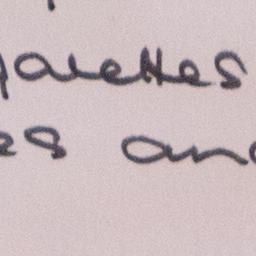 garettes
es and